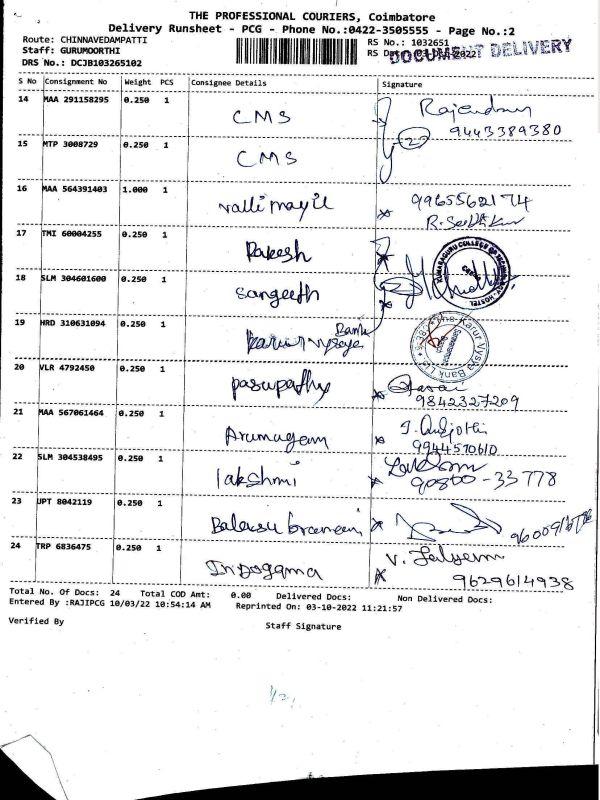 THE PROFESSIONAL COURIERS, Coimbatore
Delivery Runsheet - PCG - Phone No.:0422-3505555 - Page No.:2
Route: CHINNAVEDAMPATTI
RS No.: 1032651
Staff: GURUMOORTHI
RS Dat
DOCUMENT DELIVERY
DRS No.: DCJB103265102
S No Consignment No Weight PCS Consignee Details Signature
14 MAA 291158295 0.250 1 CMS
9443389380
15 MTP 3008729 0.250 1 CMS
16 MAA 564391403 1.000 1 Vallimayil 9965562174
17 TMI 60004255 0.250 1 Rakesh
KUMARAGURU COLLEGE OF TECHNOLOGY HOSTEL
18 SLM 304601600 0.250 1 Sangeeth
19 HRD 310631094 0.250 1 Karur Vysya Bank
The Karur Vysya Bank Ltd
20 VLR 4792450 0.250 1 Pasupathy
9842327209
21 MAA 567061464 0.250 1 Arumugam
9944570610
22 SLM 304538495 0.250 1 lakshmi
90800-33778
23 UPT 8042119 0.250 1
24 TRP 6836475 0.250 1
9629614938
Total No. Of Docs: 24 Total COD Amt: 0.00 Delivered Docs: Non Delivered Docs:
Entered By :RAJIPCG 10/03/22 10:54:14 AM Reprinted On: 03-10-2022 11:21:57
Verified By Staff Signature